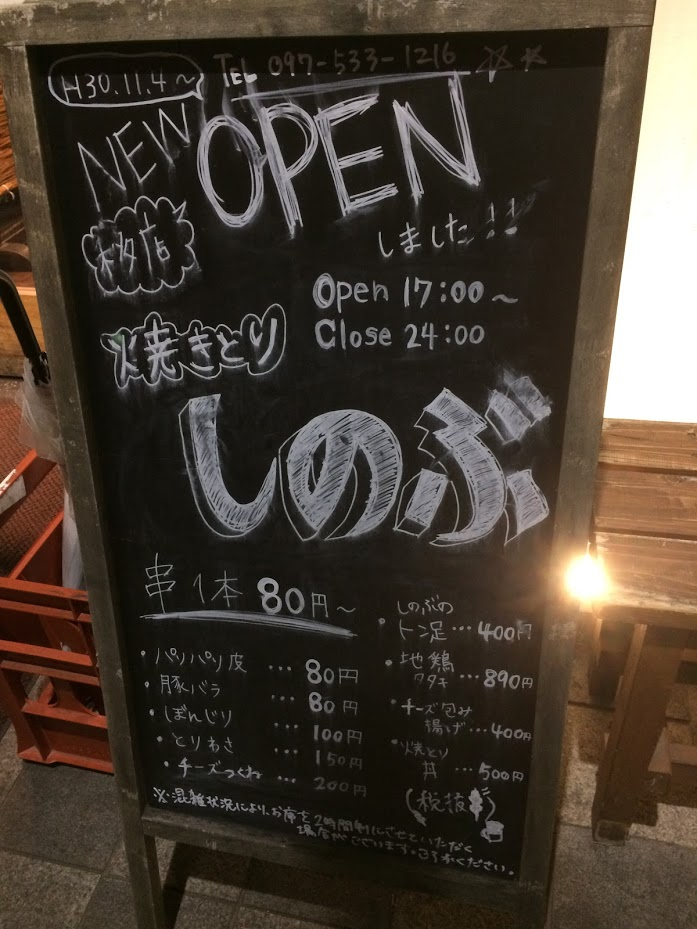 H30.11.4～
TEL 097-533-1216
NEW OPEN
移店
しました!!
Open 17:00～
Close 24:00
焼きとり
しのぶ
串1本 80円～
・パリパリ皮 … 80円
・豚バラ … 80円
・ぼんじり … 100円
・とりわさ … 150円
・チーズつくね … 200円
・しのぶの
トン足 … 400円
・地鶏
タタキ … 890円
・チーズ包み
揚げ … 400円
・焼とり
丼 … 500円
(税抜)
※混雑状況により、お席を2時間制にさせていただく
場合がございます。ご了承ください。